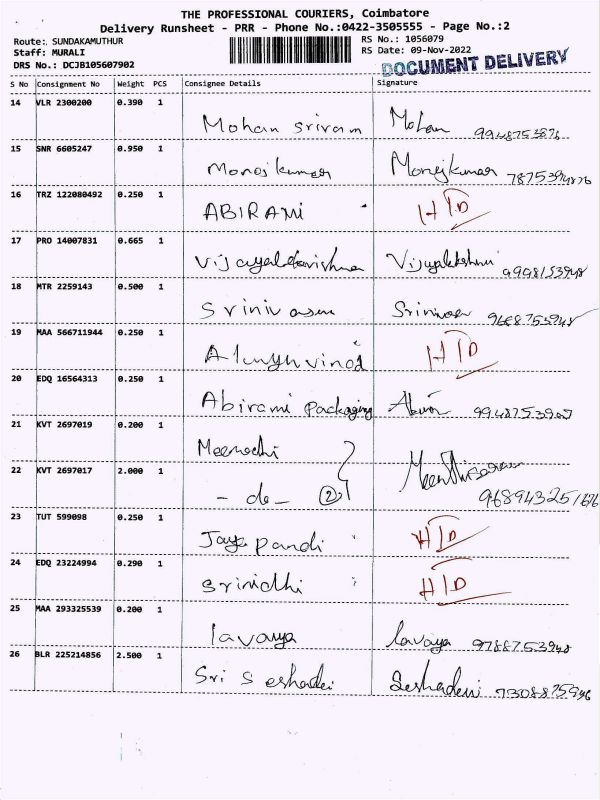 THE PROFESSIONAL COURIERS, Coimbatore
Delivery Runsheet - PRR - Phone No.:0422-3505555 - Page No.:2
Route: SUNDAKAMUTHUR
RS No.: 1056079
Staff: MURALI
RS Date: 09-Nov-2022
DRS No.: DCJB105607902
DOCUMENT DELIVERY
S No Consignment No Weight PCS Consignee Details Signature
14 VLR 2300200 0.390 1 Mohan sriram Mohan
15 SNR 6605247 0.950 1 Manojkumar Manojkumar
16 TRZ 122080492 0.250 1 ABIRAMI H/D
17 PRO 14007831 0.665 1
18 MTR 2259143 0.500 1 Srinivasan 9668753948
19 MAA 566711944 0.250 1 H/D
20 EDQ 16564313 0.250 1 Abirami packaging
21 KVT 2697019 0.200 1 Meenachi
22 KVT 2697017 2.000 1 - do - 2
23 TUT 599098 0.250 1 Jaya pandi H/D
24 EDQ 23224994 0.290 1 Srinidhi H/D
25 MAA 293325539 0.200 1 lavanya 9788753948
26 BLR 225214856 2.500 1 Sri Seshadri